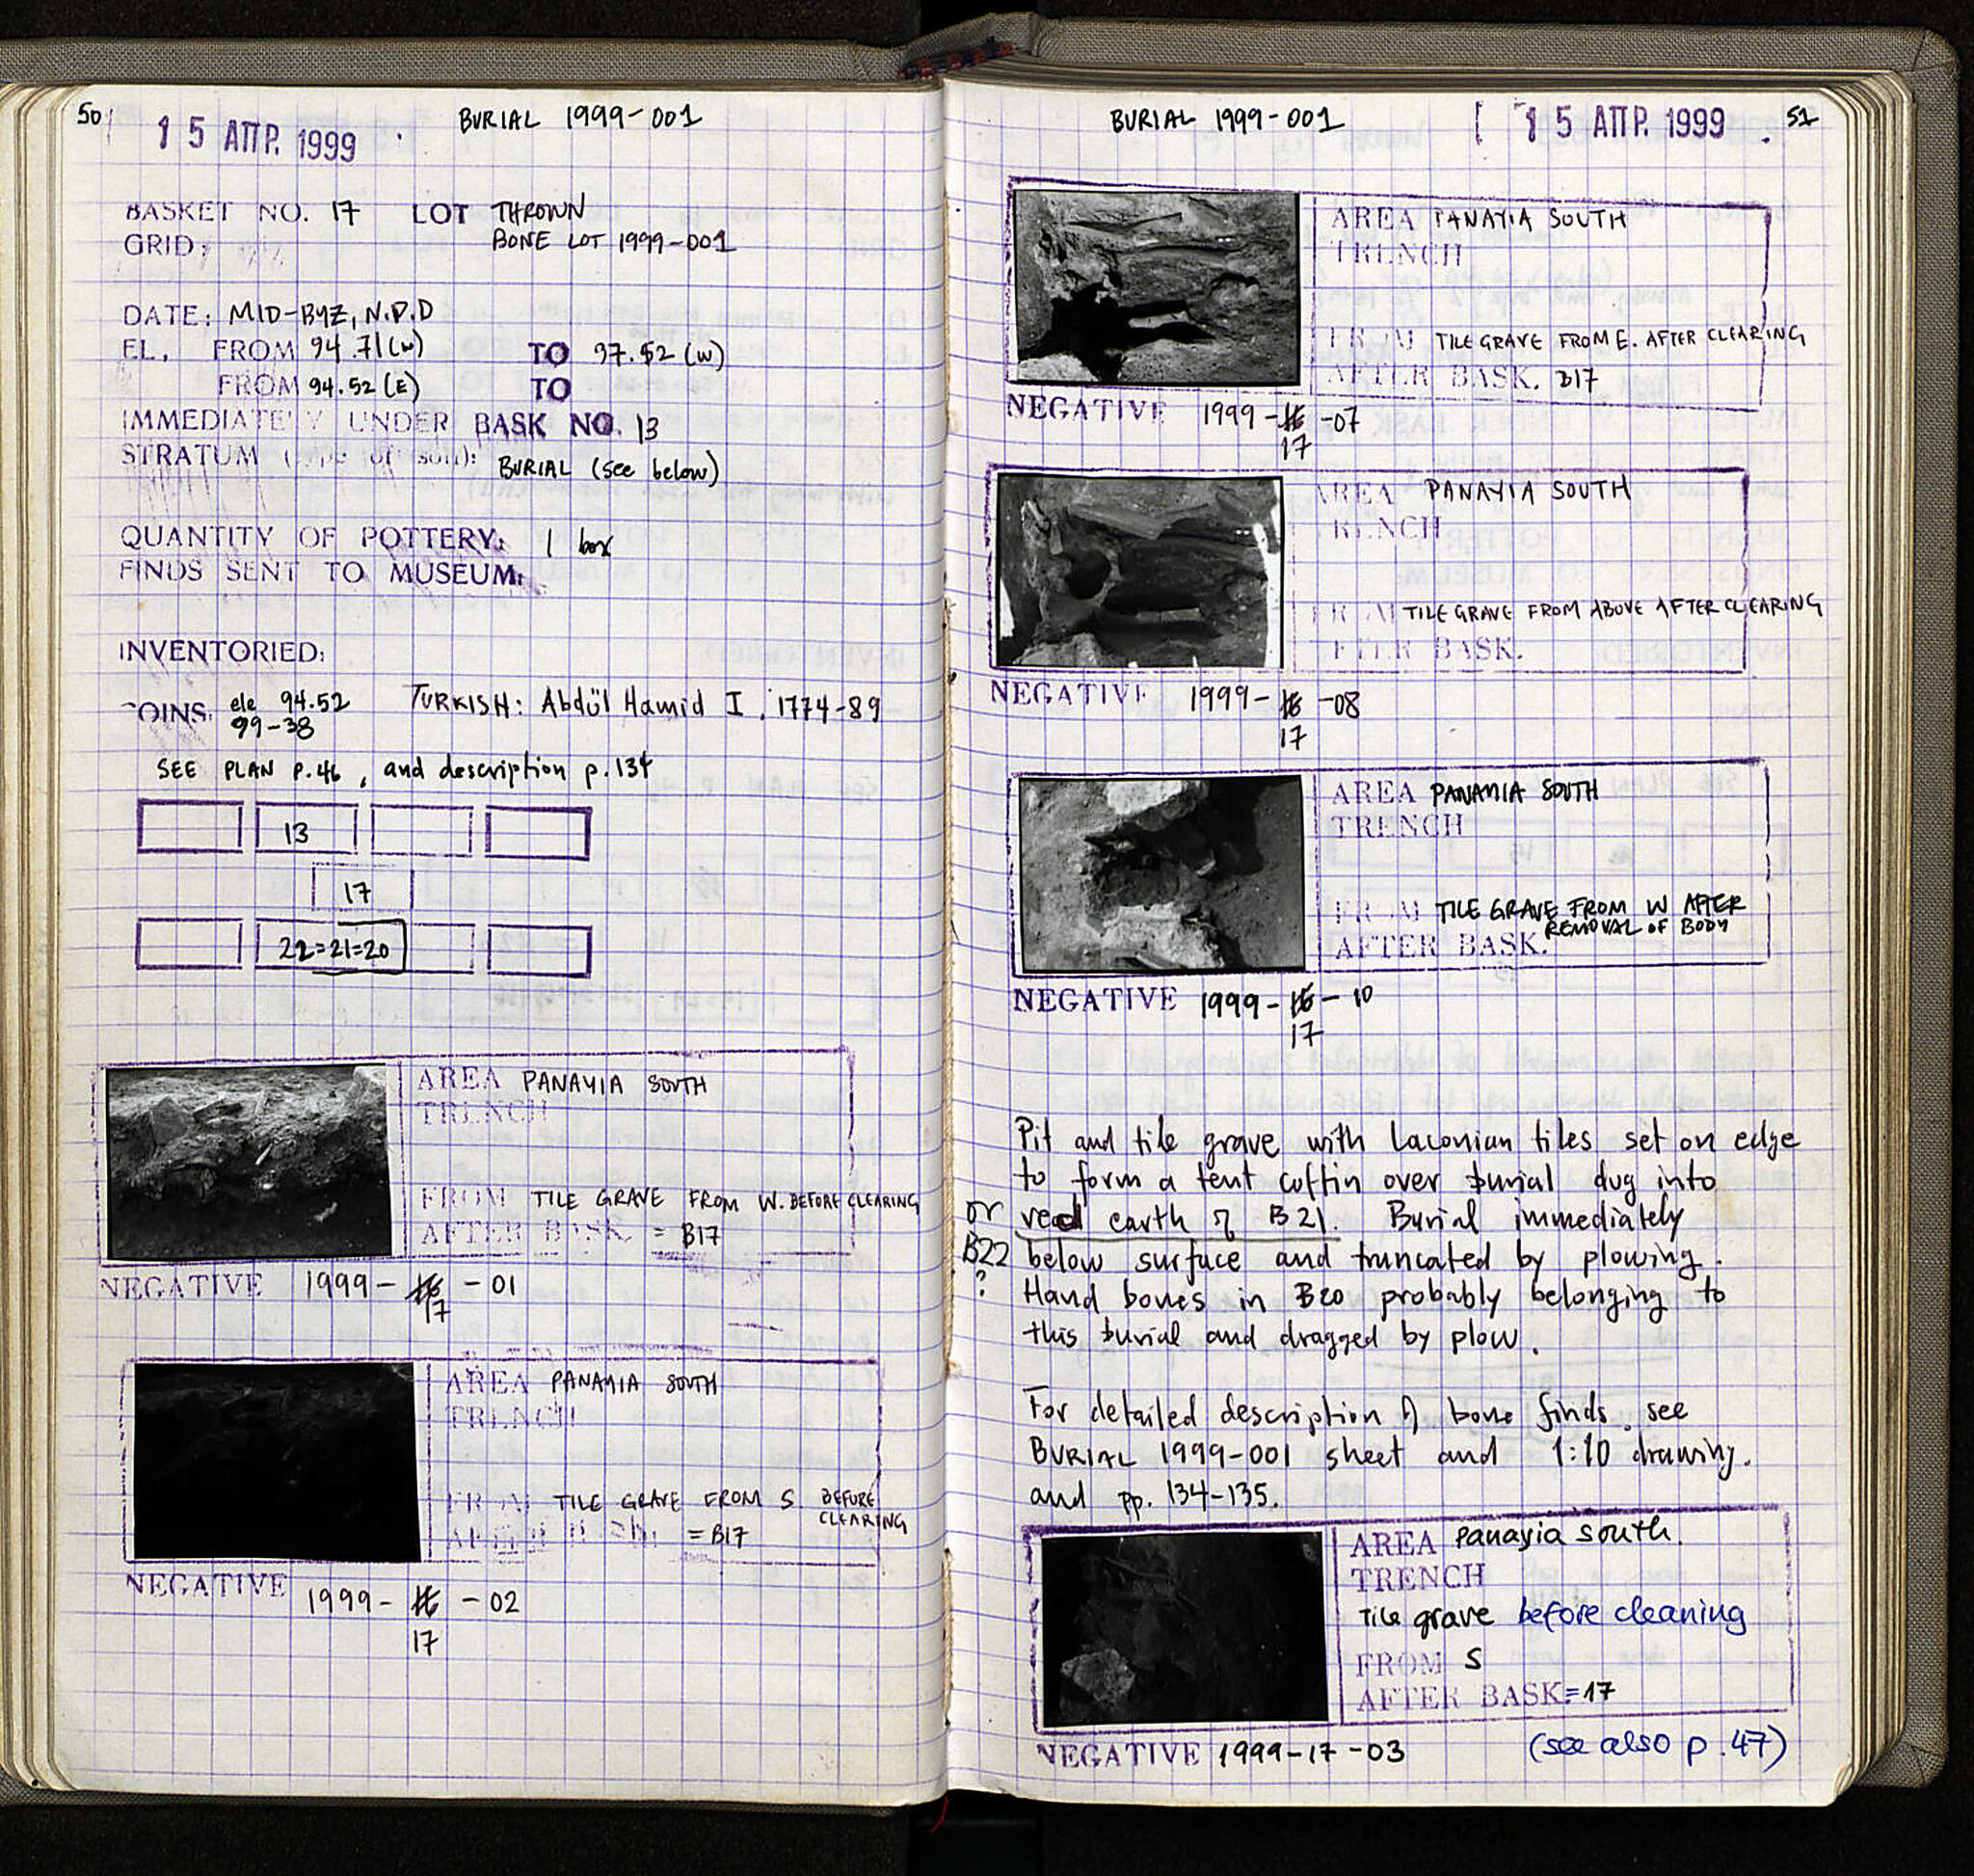 50
15 ΑΠΡ. 1999
BURIAL 1999-001
BASKET NO. 17 LOT THROWN
GRID: BONE LOT 1999-001
DATE: MID-BYZ, N.P.D
EL. FROM 94.71(W) TO 97.52 (W)
FROM 94.52 (E) TO
IMMEDIATELY UNDER BASK NO. 13
STRATUM (type of soil): BURIAL (see below)
QUANTITY OF POTTERY: 1 box
FINDS SENT TO MUSEUM:
INVENTORIED:
COINS: ele 94.52 TURKISH: Abdül Hamid I, 1774-89
99-38
SEE PLAN P.46, and description p.134
13
17
22=21=20
AREA PANAYIA SOUTH
TRENCH
FROM TILE GRAVE FROM W. BEFORE CLEARING
AFTER BASK. = B17
NEGATIVE 1999- 17 -01
AREA PANAYIA SOUTH
TRENCH
FROM TILE GRAVE FROM S. BEFORE CLEARING
AFTER = B17
NEGATIVE 1999- 17 -02
BURIAL 1999-001
15 ΑΠΡ. 1999
51
AREA PANAYIA SOUTH
TRENCH
FROM TILE GRAVE FROM E. AFTER CLEARING
AFTER BASK. B17
NEGATIVE 1999- 17 -07
AREA PANAYIA SOUTH
TRENCH
FROM TILE GRAVE FROM ABOVE AFTER CLEARING
AFTER BASK.
NEGATIVE 1999- 17 -08
AREA PANAYIA SOUTH
TRENCH
FROM TILE GRAVE FROM W AFTER REMOVAL OF BODY
AFTER BASK.
NEGATIVE 1999- 17 -10
Pit and tile grave with Laconian tiles set on edge
to form a tent coffin over burial dug into
or red earth of B21. Burial immediately
B22 below surface and truncated by plowing.
? Hand bones in B20 probably belonging to
this burial and dragged by plow.
For detailed description of bone finds, see
BURIAL 1999-001 sheet and 1:10 drawing.
and pp. 134-135.
AREA Panayia South.
TRENCH
Tile grave before cleaning
FROM S
AFTER BASK=17
NEGATIVE 1999-17-03
(see also p.47)